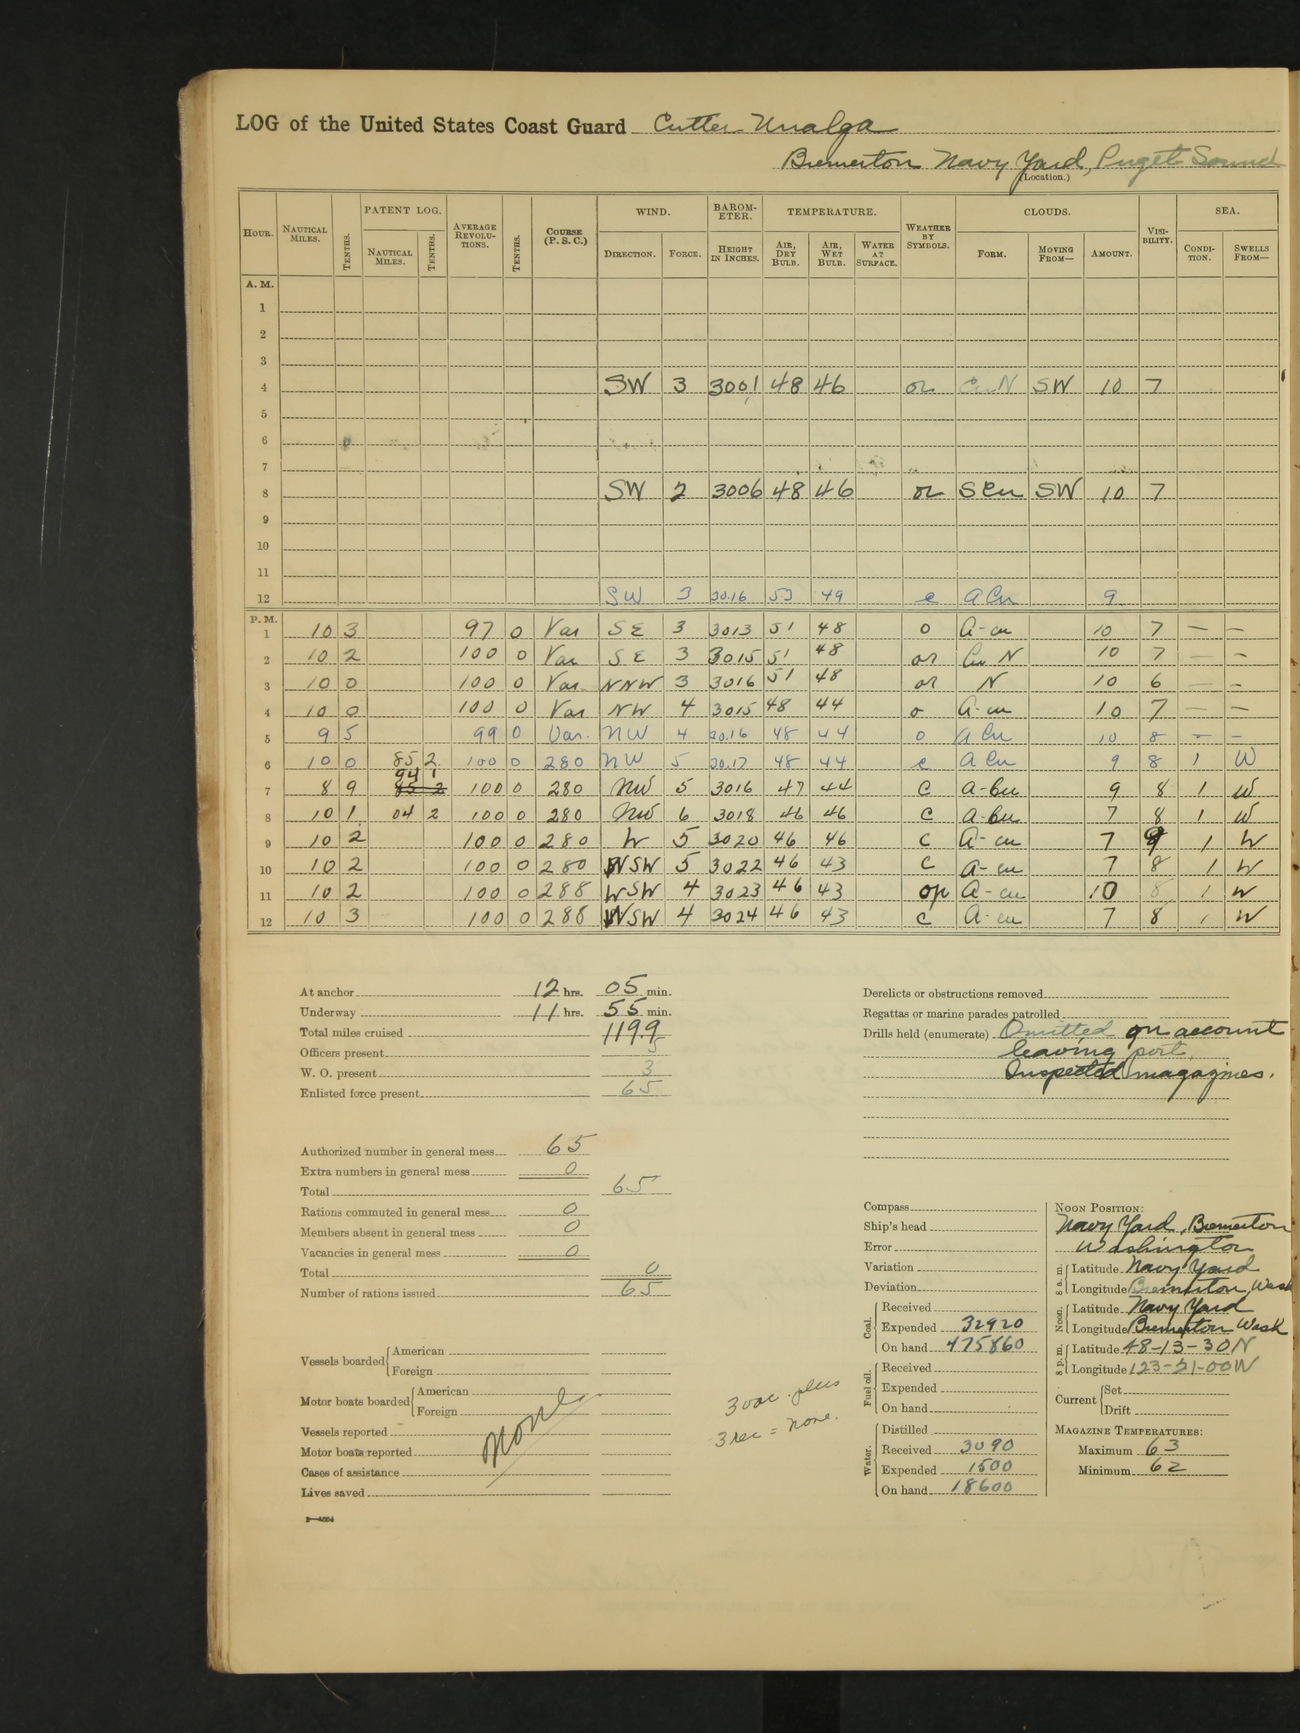 LOG of the United States Coast Guard Cutter Unalga
Bremerton Navy Yard, Puget Sound
(Location.)
HOUR. NAUTICAL MILES. TENTHS. PATENT LOG. NAUTICAL MILES. TENTHS. AVERAGE REVOLUTIONS. TENTHS. COURSE (P. S. C.) WIND. DIRECTION. FORCE. BAROMETER. HEIGHT IN INCHES. TEMPERATURE. AIR, DRY BULB. AIR, WET BULB. WATER AT SURFACE. WEATHER BY SYMBOLS. CLOUDS. FORM. MOVING FROM— AMOUNT. VISIBILITY. SEA. CONDITION. SWELLS FROM—
A. M.
1
2
3
4 SW 3 3001 48 46 or CuN SW 10 7
5
6
7
8 SW 2 3006 48 46 or SCu SW 10 7
9
10
11
12 SW 3 30.16 53 49 c ACu 9
P. M.
1 10 3 97 0 Var SE 3 3013 51 48 o A-cu 10 7 — —
2 10 2 100 0 Var SE 3 3015 51 48 or Cu N 10 7 — —
3 10 0 100 0 Var NNW 3 3016 51 48 or N 10 6 — —
4 10 0 100 0 Var NW 4 3015 48 44 o A-cu 10 7 — —
5 9 5 99 0 Var. NW 4 30.16 48 44 o ACu 10 8 — —
6 10 0 85 2 100 0 280 NW 5 30.17 48 44 c ACu 9 8 1 W
7 8 9 94 1 100 0 280 NW 5 3016 47 44 c A-Cu 9 8 1 W
8 10 1 04 2 100 0 280 NW 6 3018 46 46 c A-Cu 7 8 1 W
9 10 2 100 0 280 W 5 3020 46 46 c A-cu 7 8 1 W
10 10 2 100 0 280 WSW 5 3022 46 43 c A-cu 7 8 1 W
11 10 2 100 0 288 WSW 4 3023 46 43 op A-cu 10 8 1 W
12 10 3 100 0 288 WSW 4 3024 46 43 c A-cu 7 8 1 W
At anchor 12 hrs. 05 min.
Underway 11 hrs. 55 min.
Total miles cruised 119.9
Officers present 5
W. O. present 3
Enlisted force present 65
Authorized number in general mess 65
Extra numbers in general mess 0
Total 65
Rations commuted in general mess 0
Members absent in general mess 0
Vacancies in general mess 0
Total 0
Number of rations issued 65
Vessels boarded American
Foreign
Motor boats boarded American
Foreign
Vessels reported
Motor boats reported
Cases of assistance
Lives saved
none
3 vac. plus
3 rec = none.
Derelicts or obstructions removed
Regattas or marine parades patrolled
Drills held (enumerate) Omitted on account
leaving port.
Inspected magazines.
Compass
Ship's head
Error
Variation
Deviation
Coal. Received
Expended 32920
On hand 475860
Fuel oil. Received
Expended
On hand
Water. Distilled
Received 3090
Expended 1500
On hand 18600
NOON POSITION:
Navy Yard, Bremerton
Washington
8 a. m. Latitude Navy Yard
Longitude Bremerton, Wash
Noon. Latitude Navy Yard
Longitude Bremerton Wash
8 p. m. Latitude 48-13-30N
Longitude 123-21-00W
Current Set
Drift
MAGAZINE TEMPERATURES:
Maximum 63
Minimum 62